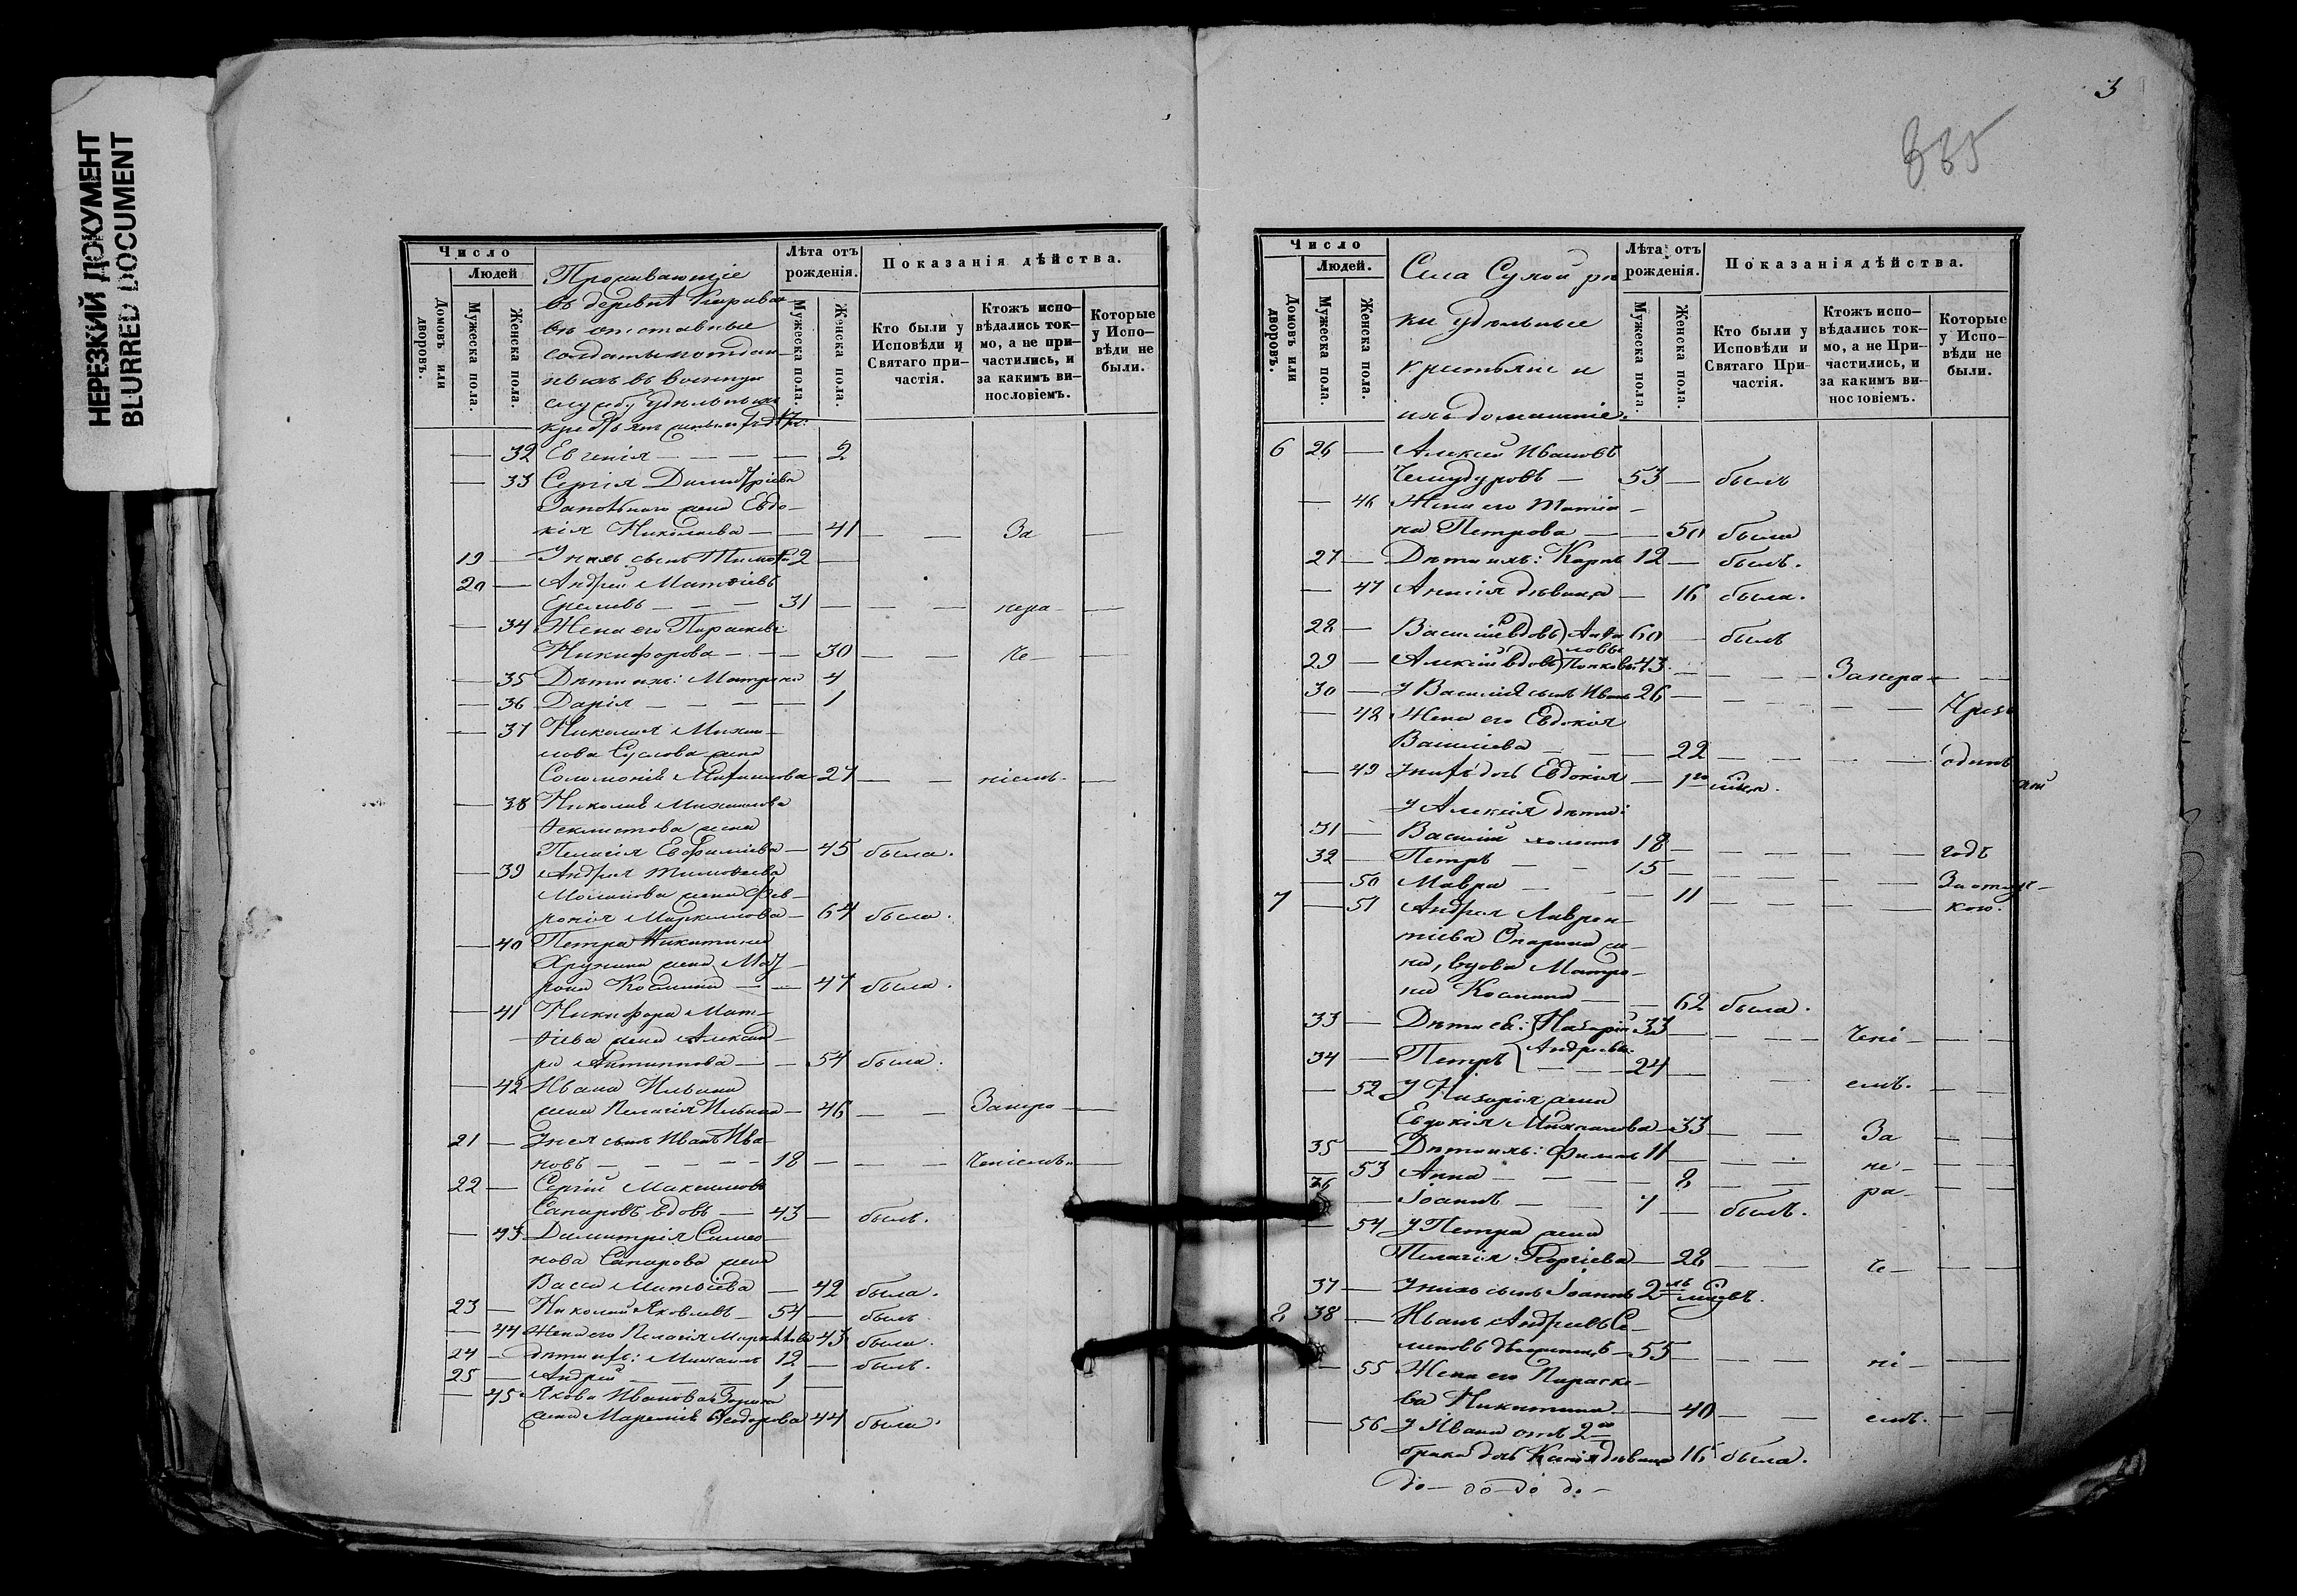 НЕРЕЗКИЙ ДОКУМЕНТ
BLURRED DOCUMENT
Число
Людей
Домовъ или дворовъ.
Мужеска пола.
Женска пола.
Проживающіе
въ деревнѣ
отставные
солдаты
въ военную
службу удѣльныхъ
Лѣта отъ рожденія.
Мужеска пола.
Женска пола.
Показанія дѣйства.
Кто были у Исповѣди и Святаго причастія.
Ктожъ исповѣдались токмо, а не причастились, и за какимъ винословіемъ.
Которые у Исповѣди не были.
— 32 Евгенія — — — — 2
— 33 Сергія Димитріева
жена Евдо-
кія Николаева — — 41 — — За —
19 — У нихъ сынъ 2 —
20 — Андрей Матвіевъ
— — — 31 — — нера- —
— 34 Жена его Параскева
Никифорова — — — 30 — — че- —
— 35 Дѣти ихъ: Матрона 4
— 36 Дарія — — — — 1
— 37 Николая Михаи-
лова Суслова жена
Соломонія 27 — — ніемъ. —
— 38 Николая Михаилова
Ѳеклистова жена
Пелагія Евфиміева — 45 была.
— 39 Андрея Тимоѳеева
жена Фев-
ронія Маркелова — 64 была.
— 40 Петра Никитина
Хрунина жена Мат-
рона Космина — — 47 была.
— 41 Никифора Мат-
ѳіева жена Александ-
ра Антипова — — 54 была.
— 42 Ивана Ильина
жена Пелагія Ильина — 46 — — Занера- —
21 — У нея сынъ Иванъ Ива-
новъ — — — — 18 — — — ченіемъ. —
22 — Сергій Максимовъ
Сапаровъ вдовъ — 43 — былъ.
— 43 Димитрія Симео-
нова Сапарова жена
Васса Матвіева — 42 была.
23 — Николай Яковлевъ — 54 — былъ.
— 44 Жена его Пелагія Маркелова 43 была.
24 — Дѣти ихъ: Михаилъ 12 — былъ.
25 — Андрей — — — 1 —
— 45 Якова Иванова
жена Ѳеодорова 44 была.
3
835
Число
Людей.
Домовъ или дворовъ.
Мужеска пола.
Женска пола.
Села Сухой рѣ-
ки удѣльные
крестьяне и
ихъ домашніе.
Лѣта отъ рожденія.
Мужеска пола.
Женска пола.
Показанія дѣйства.
Кто были у Исповѣди и Святаго Причастія.
Ктожъ исповѣдались токмо, а не Причастились, и за какимъ винословіемъ.
Которые у Исповѣди не были.
6 26 — Алексій Ивановъ
Чемудуровъ — 53 — былъ
— 46 Жена его Татіа-
на Петрова — — 50 была
27 — Дѣти ихъ: Карпъ 12 — былъ.
— 47 Анисія дѣвица — 16 была.
28 — Василій вдовъ 60 — былъ
29 — Алексій вдовъ 43 — — — Занера- — —
30 — У Василія сынъ Иванъ 26 — — — — — Чрезъ
— 48 Жена его Евдокія
Васильева — — — 22 — — — — одинъ
— 49 У нихъ дочь Евдокія — 1го мѣсяца.
У Алексія дѣти:
31 — Василій холостъ 18 — — — — — годъ
32 — Петръ — — 15 — — — — — За отлуч-
— 50 Мавра — — — 11 — — — — кою.
7 — 51 Андрея Лаврен-
тіева Опарина же-
на, вдова Матро-
на Космина — — 62 была.
33 — Дѣти ея: Назарій 33 — — — — чені- —
34 — Петръ Андреевы — — 24 — — емъ. —
— 52 У Назарія жена
Евдокія — 33 — — За — —
35 — Дѣти ихъ: 11 — — — не- — —
— 53 Анна — — — — 8 — — ра- —
36 — Іоаннъ — — 7 — былъ.
— 54 У Петра жена
Пелагія Георгіева — 28 — — че- — —
37 — У нихъ сынъ Іоаннъ 2хъ мѣсяцевъ.
8 38 — Иванъ Андреевъ Се-
меновъ — 55 — — — ні- — —
— 55 Жена его Параске-
ва Никитина — — 40 — — емъ. — —
— 56 У Ивана отъ 2го
брака дочь дѣвица 16 была.